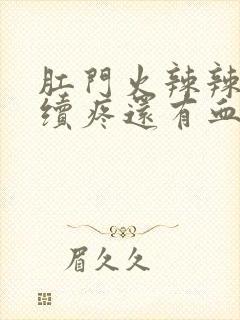 肛門火辣辣
續疼還有血
眉久久